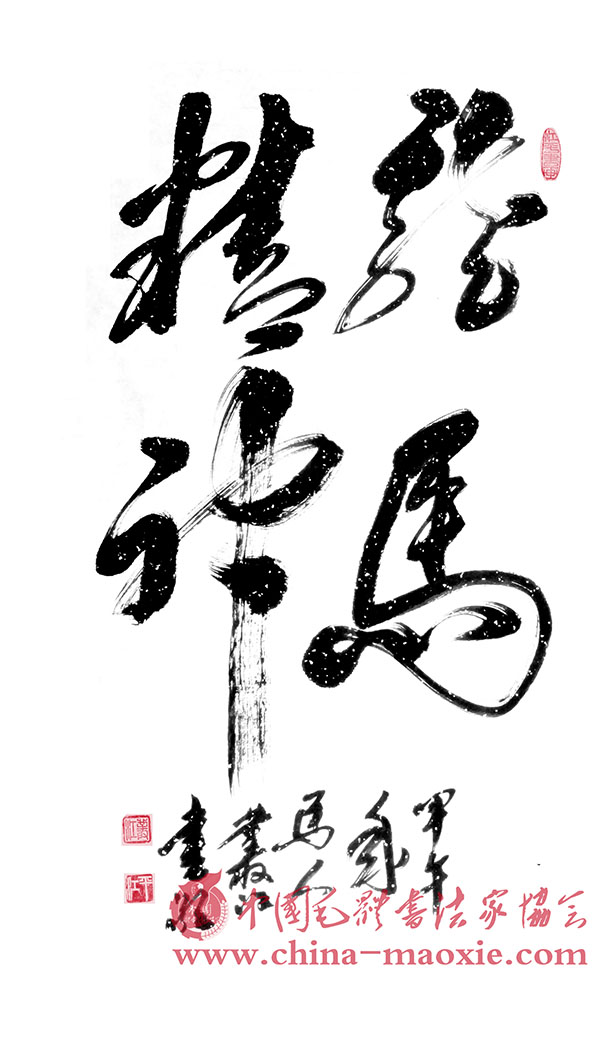 龍馬
精神
甲午
馬人
書
中國毛體書法家協会
www.china-maoxie.com